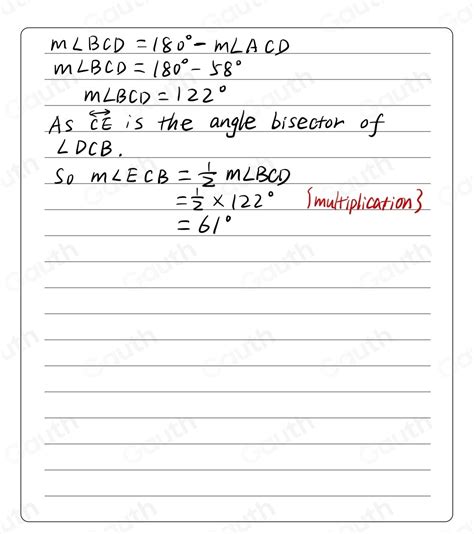 m∠BCD = 180° - m∠ACD
m∠BCD = 180° - 58°
m∠BCD = 122°
As \overleftrightarrow{CE} is the angle bisector of
∠DCB.
So m∠ECB = 1/2 m∠BCD
= 1/2 × 122° {multiplication}
= 61°